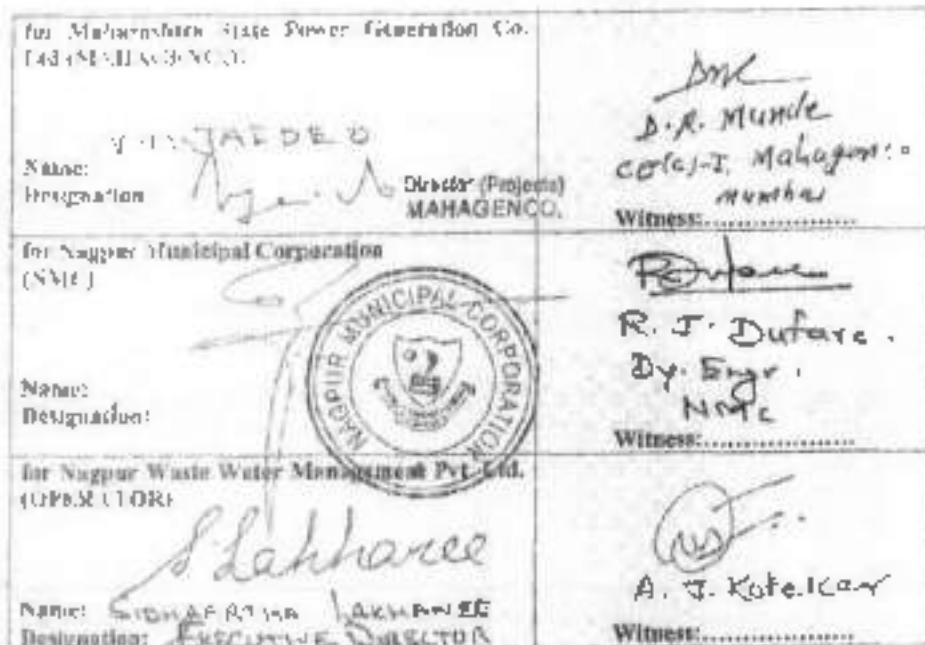 for Maharashtra State Power Generation Co.
Ltd (MAHAGENCO)
JAEDEO
Name:
Designation
Director (Projects)
MAHAGENCO.
D. R. Munde
Mumbai
Witness:..................
for Nagpur Municipal Corporation
(NMC)
NAGPUR MUNICIPAL CORPORATION
Name:
Designation:
R. J. Dufare.
Dy. Engr.
NMC
Witness:..................
for Nagpur Waste Water Management Pvt. Ltd.
(OPERATOR)
Name: LAKHANEE
Designation: EXECUTIVE DIRECTOR
A. J. Kotelkar
Witness:..................